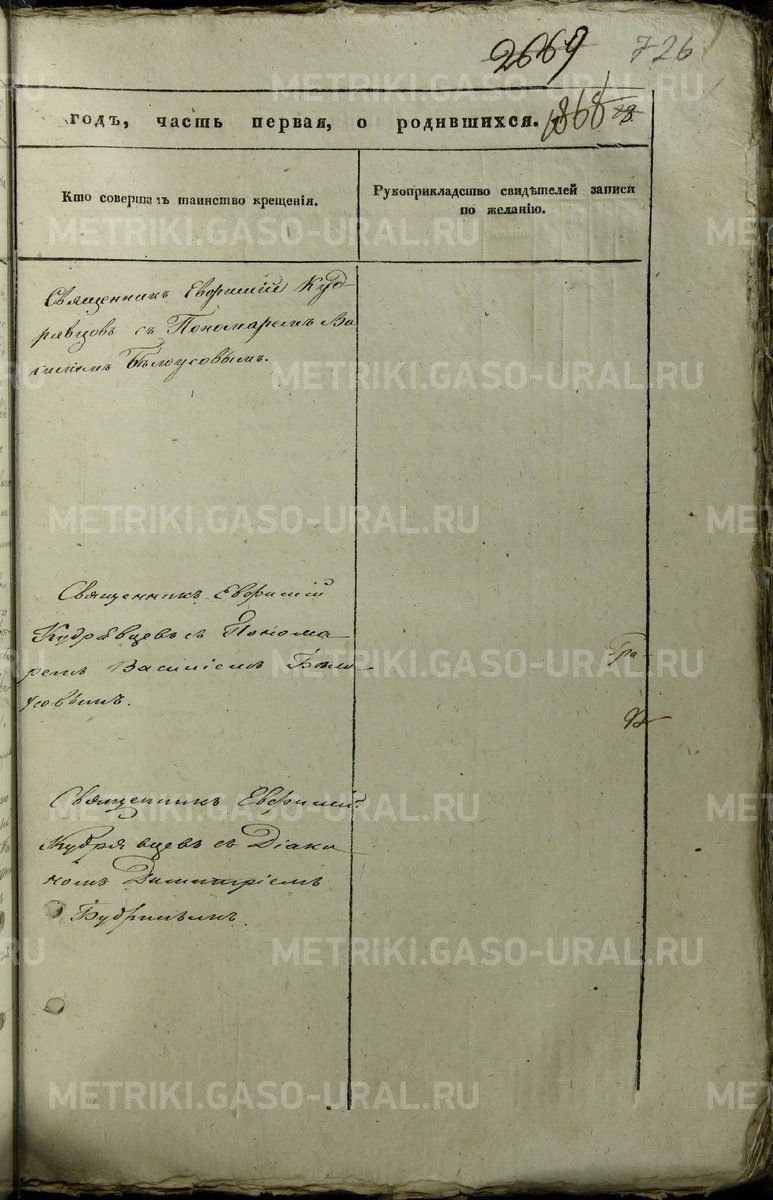 2669 726
годъ, часть первая, о родившихся. 1868
Кто совершалъ таинство крещенія.
Рукоприкладство свидѣтелей записи
по желанію.
Священникъ Евфимій Куд-
рявцовъ съ Пономаремъ Ва
силіемъ Бѣлоусовымъ.
Священникъ Евфимій
Кудрявцевъ съ Понома-
ремъ Василіемъ Бѣло-
усовымъ.
Гра-
Священникъ Евфимій
Кудрявцевъ съ Діако-
номъ Димитріемъ
Будринымъ.
METRIKI.GASO-URAL.RU